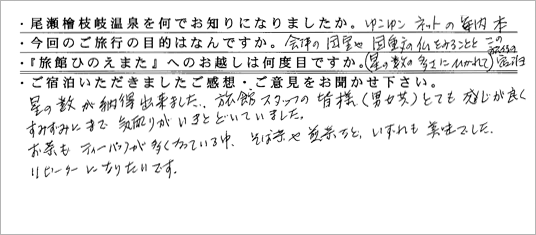 ・尾瀬檜枝岐温泉を何でお知りになりましたか。ゆこゆこ ネットの案内本
・今回のご旅行の目的はなんですか。会津の国宝や国重文の仏をみることと この旅館の
・『旅館ひのえまた』へのお越しは何度目ですか。(星の数の多さにひかれて)宿泊
・ご宿泊いただきましたご感想・ご意見をお聞かせ下さい。
星の数が納得出来ました。旅館スタッフの皆様(男女共)とても感じが良く
すみずみにまで気配りがいきとどいていました。
お茶もティーバックが多くなっている中、そば茶や煎茶など、いずれも美味でした。
リピーターになりたいです。